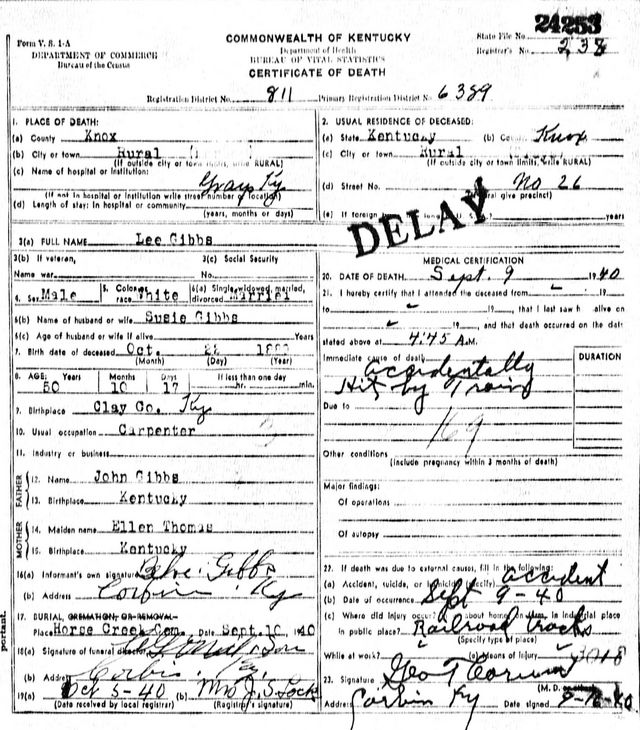 24253
Form V. S. 1-A
DEPARTMENT OF COMMERCE
Bureau of the Census
COMMONWEALTH OF KENTUCKY
Department of Health
BUREAU OF VITAL STATISTICS
CERTIFICATE OF DEATH
State File No.
Registrar's No. 238
Registration District No. 811 Primary Registration District No. 6389
1. PLACE OF DEATH:
(a) County Knox
(b) City or town Rural
(If outside city or town limits, write RURAL)
(c) Name of hospital or institution:
Grays Ky
(If not in hospital or institution write street number or location)
(d) Length of stay: In hospital or community
(years, months or days)
2. USUAL RESIDENCE OF DECEASED:
(a) State Kentucky (b) County Knox
(c) City or town Rural
(If outside city or town limits, write RURAL)
(d) Street No. No 26
(If rural give precinct)
(e) If foreign years
DELAY
3(a) FULL NAME Lee Gibbs
3(b) If veteran, 3(c) Social Security
Name war No.
4. Sex Male 5. Color or race White 6(a) Single, widowed, married, divorced Married
6(b) Name of husband or wife Susie Gibbs
6(c) Age of husband or wife if alive Years
7. Birth date of deceased Oct.
(Month) (Day) (Year)
8. AGE: Years Months Days If less than one day
50 10 17 hr. min.
9. Birthplace Clay Co. Ky
10. Usual occupation Carpenter
11. Industry or business
FATHER
12. Name John Gibbs
13. Birthplace Kentucky
MOTHER
14. Maiden name Ellen Thomas
15. Birthplace Kentucky
16(a) Informant's own signature Gibbs
(b) Address Corbin Ky
17. BURIAL, CREMATION, OR REMOVAL
Place Horse Creek Cem. Date Sept. 10, 1940
18(a) Signature of funeral director
(b) Address Corbin, Ky.
19(a) Oct 5-40 (b) Mrs J. S. Lock
(Date received by local registrar) (Registrar's signature)
MEDICAL CERTIFICATION
20. DATE OF DEATH Sept. 9 1940
21. I hereby certify that I attended the deceased from 19
to 19 , that I last saw h alive on
19 , and that death occurred on the date
stated above at 4:45 A.M.
Immediate cause of death DURATION
accidentally
Hit by Train
Due to
169
Other conditions
(Include pregnancy within 3 months of death)
Major findings:
Of operations
Of autopsy
22. If death was due to external causes, fill in the following:
(a) Accident, suicide, or homicide (specify) accident
(b) Date of occurrence Sept 9-40
(c) Where did injury occur? in or about home, on farm, in industrial place
in public place? Railroad tracks
(Specify type of place)
While at work? (e) Means of injury
23. Signature Geo T
(M. D.
Address Corbin Ky Date signed 9-16-40
portant.